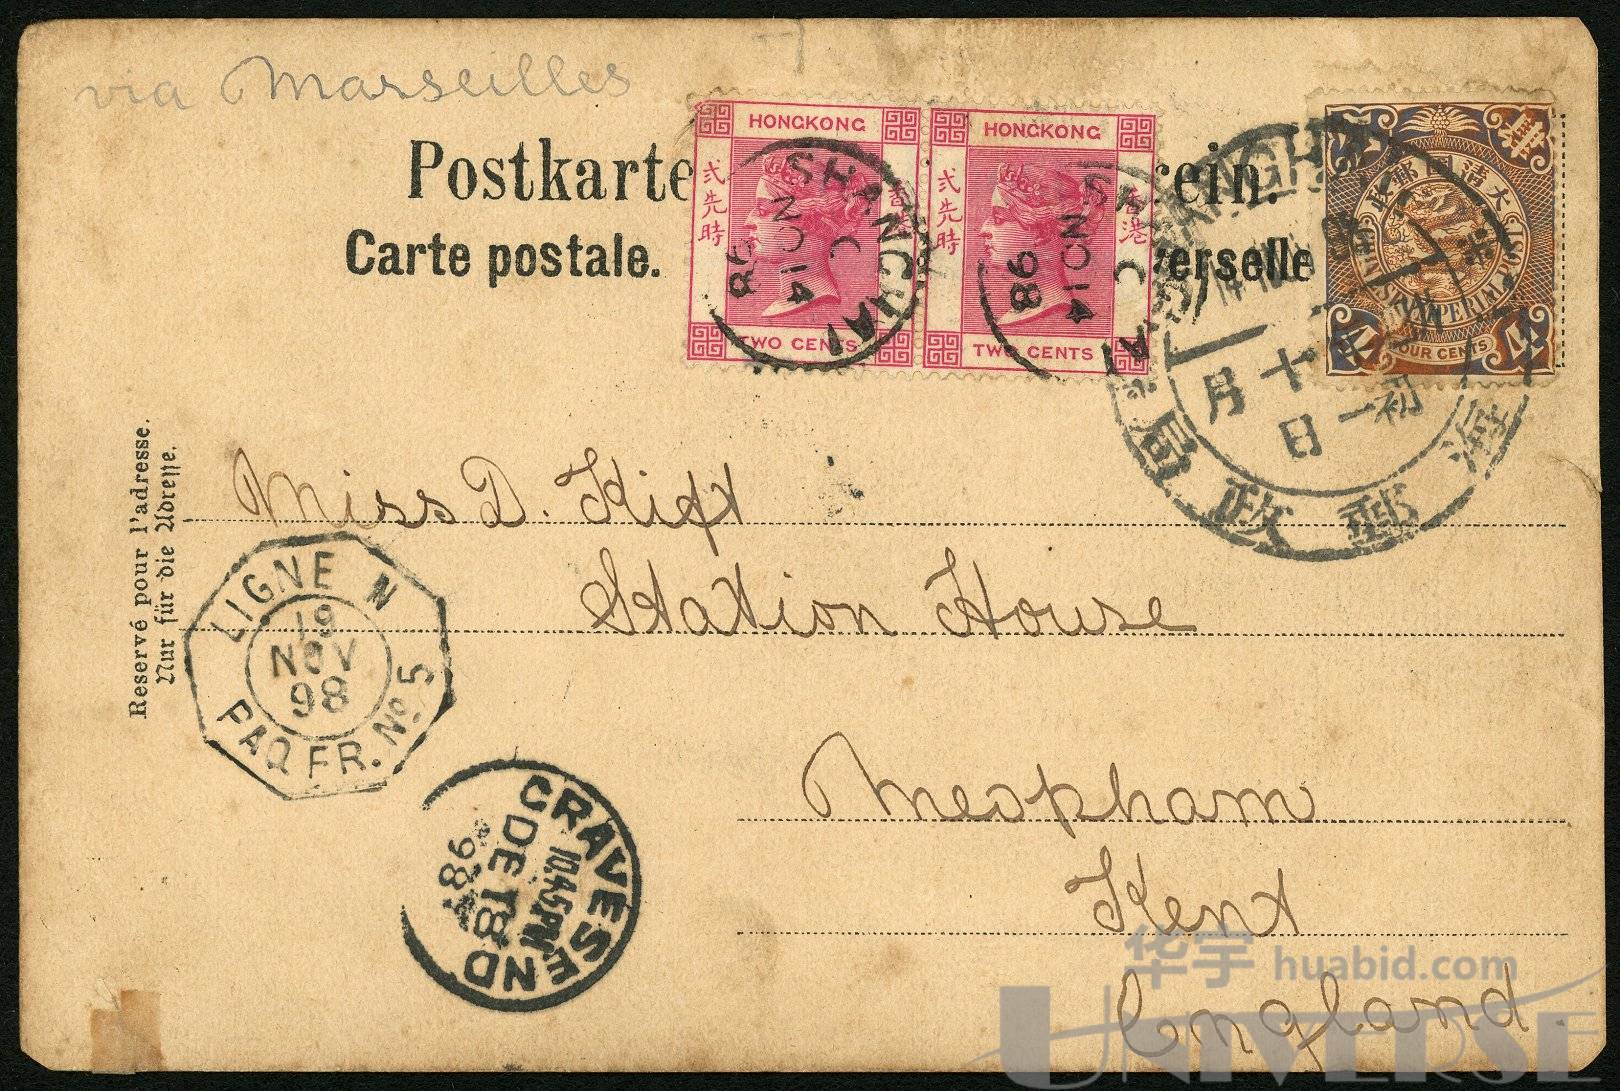 via Marseilles
Postkarte rein.
Carte postale. verselle
HONGKONG
弍先時
香港
TWO CENTS
HONGKONG
弍先時
香港
TWO CENTS
SHANGHAI
C
NO 14
98
SHANGHAI
C
NO 14
98
大清國郵政
IMPERIAL
FOUR CENTS
4
月 十日 初一
海 郵政局
Reservé pour l'adresse.
Nur für die Adresse.
Miss D. Kift
Station House
Meopham
Kent
England.
LIGNE N
19
NOV
98
PAQ FR. No 5
GRAVESEND
10.45PM
DE 18
98
华宇 huabid.com
UNIVERSE